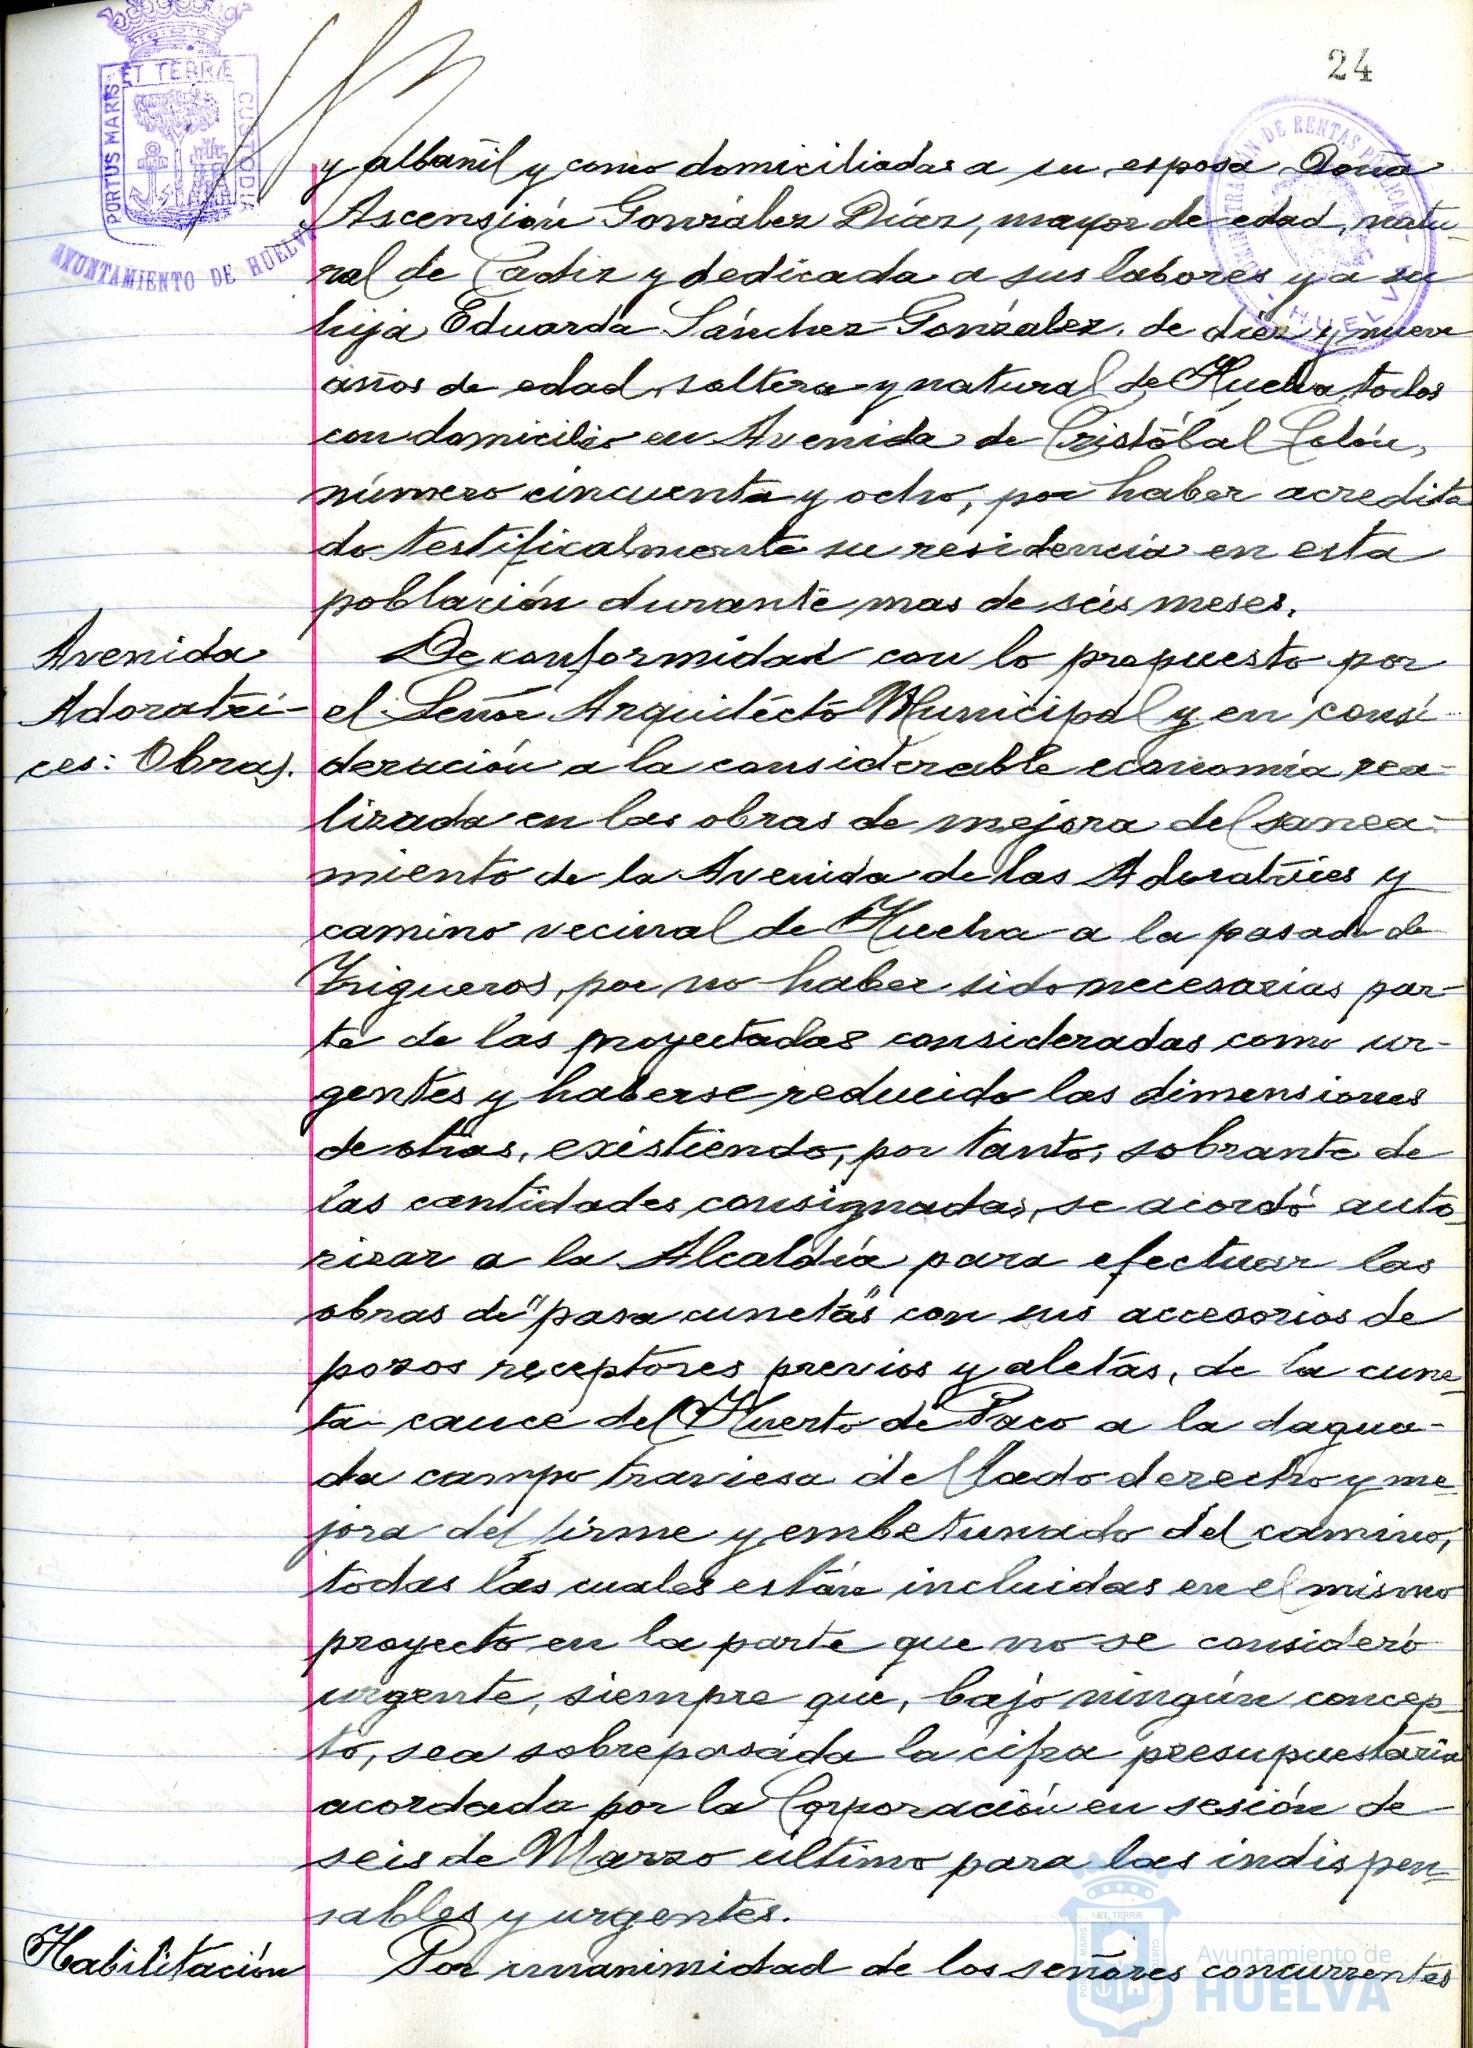 24
PORTUS MARIS ET TERRÆ CUSTODIA
AYUNTAMIENTO DE HUELVA
ADMINISTRACIÓN DE RENTAS PÚBLICAS
HUELVA
y albañil y como domiciliadas a su esposa Doña
Ascensión González Díaz, mayor de edad, natu-
ral de Cádiz y dedicada a sus labores y a su
hija Eduarda Sánchez González, de diez y nueve
años de edad, soltera y natural de Huelva, todos
con domicilio en Avenida de Cristóbal Colón,
número cincuenta y ocho, por haber acredita
do testificalmente su residencia en esta
población durante mas de seis meses.
Avenida
Adoratri-
ces: Obras.
De conformidad con lo propuesto por
el Señor Arquitecto Municipal y en consi-
deración a la considerable economía rea-
lizada en las obras de mejora del sanea-
miento de la Avenida de las Adoratrices y
camino vecinal de Huelva a la pasada de
Trigueros, por no haber sido necesarias par-
te de las proyectadas consideradas como ur-
gentes y haberse reducido las dimensiones
de otras, existiendo, por tanto, sobrante de
las cantidades consignadas, se acordó auto-
rizar a la Alcaldía para efectuar las
obras de "pasa cunetas" con sus accesorios de
pozos receptores previos y aletas, de la cune-
ta-cauce del Huerto de Paco a la dagua-
da campo traviesa del lado derecho y me-
jora del firme y embetunado del camino,
todas las cuales están incluidas en el mismo
proyecto en la parte que no se consideró
urgente, siempre que, bajo ningún concep-
to, sea sobrepasada la cifra presupuestaria
acordada por la Corporación en sesión de
seis de Marzo último para las indispen-
sables y urgentes.
Habilitación
Por unanimidad de los señores concurrentes
PORTUS MARIS ET TERRÆ CUSTODIA
Ayuntamiento de
HUELVA